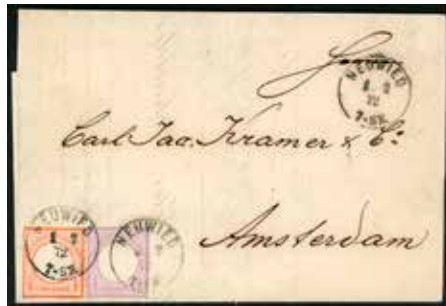 NEUWIED
8 2
72
7-8N.
Carl Jac. Kramer & Co:
Amsterdam
NEUWIED
8 2
72
7-8N.
NEUWIED